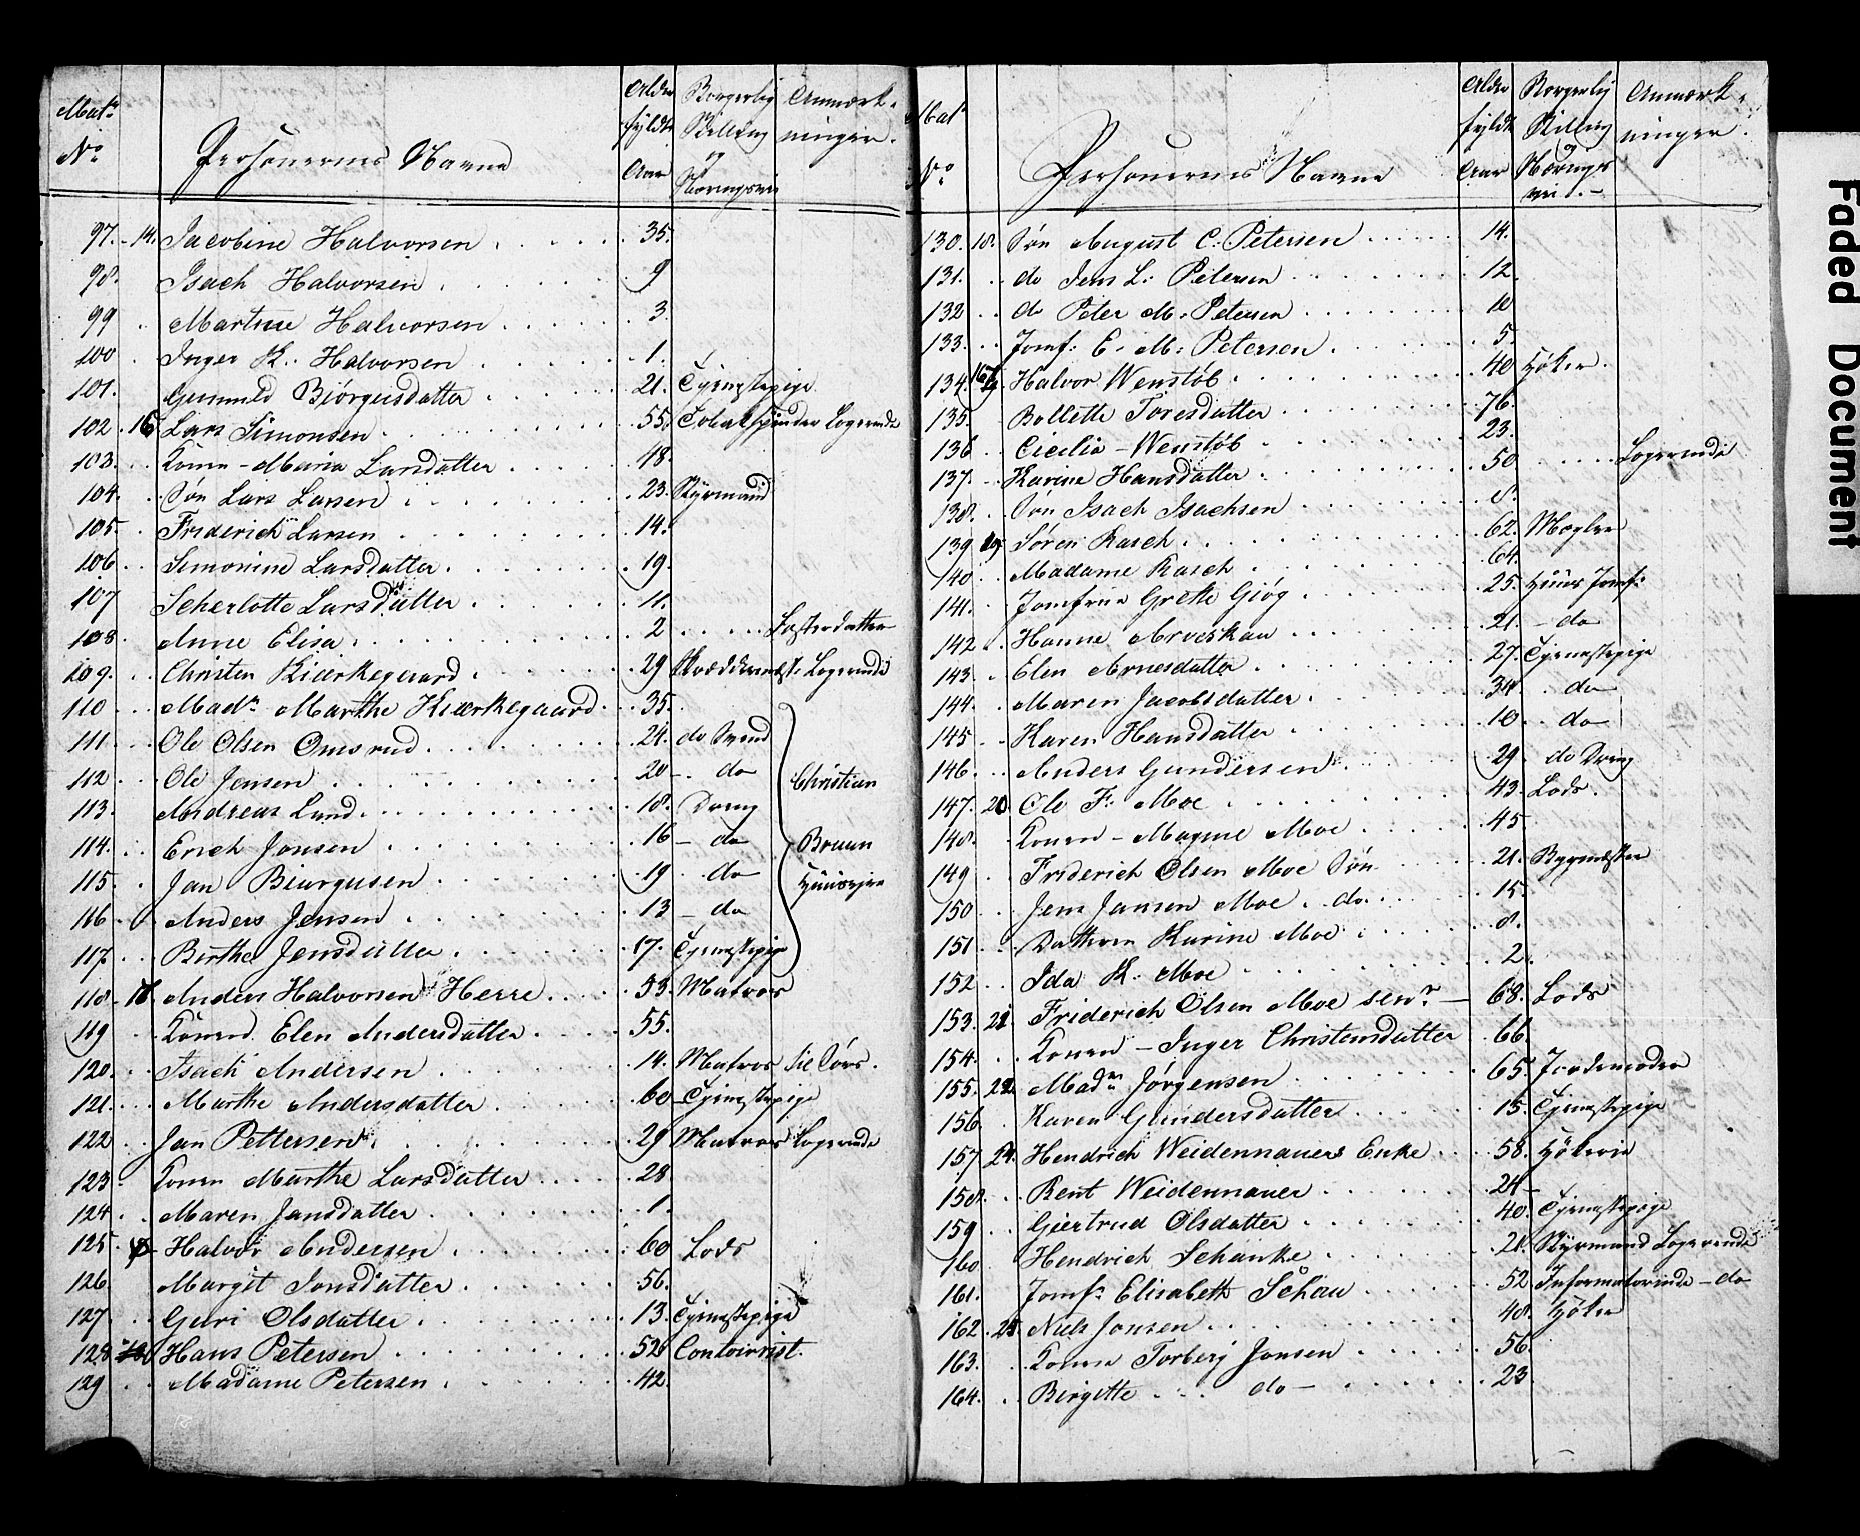 Matr No Personernes Navne Alder fyldte Aar Borgerlig Stilling og Næringsvei Anmærkninger.
97. 14. Jacobine Halvorsen 35.
98. Isach Halvorsen 9
99 Martine Halvorsen 3.
100 Inger K. Halvorsen 1.
101. Gunnild Biörgusdatter 21. Tjenestepige
102. 15 Lars Simonsen 55. Tobakspinder Logerende
103. Konen - Maria Larsdatter 48.
104. Søn Lars Larsen 23. Styrmand
105. Friderich Larsen 14.
106 Simonine Larsdatter 19.
107 Scherlotte Larsdatter 11.
108 Anne Elisa 2 Fosterdatter
109. Christen Kierkegaard 29 Skræddermest. Logerende
110 Madm Marthe Kierkegaard 35.
111 Ole Olsen Omsrud 24. do Svend
112 Ole Jensen 20 - do Christian
113. Andreas Lund 18. Dreng
114. Erich Jonsen 16 - do Bruun
115 Jan Biurgusen 19 do Huusejer
116 Anders Jensen 13 - do
117. Birthe Jensdatter 17. Tjenestepige
118 - 16 Anders Halvorsen Herre 53. Matros
119 Konen Elen Andersdatter 55.
120. Isach Andersen 14. Matros til Søes.
121. Marthe Andersdatter 60 - Tjenestepige
122 Jan Pettersen 29 Matros Logerende
123 Konen Marthe Larsdatter 28
124 Maren Jansdatter 1.
125 Halvor Andersen 60 Lods
126. Margit Jonsdatter 56.
127. Guri Olsdatter 13. Tjenestepige
128 Hans Petersen 52 Contoirist.
129 Madame Petersen 42.
Matr No. Personernes Navne Alder fyldt Aar Borgerlig Stilling og Nærings vei. - Anmærkninger.
130. 18. Søn August C. Petersen 14.
131. do Jens L. Petersen 12.
132 do Peter M. Petersen 10
133. Jomf: E. M: Petersen 5.
134. Halvor Wenstöb 40 Höker.
135. Bollette Toresdatter 76.
136 Cicilia Wenstöb 23.
137. Karine Hansdatter 50 Logerende
138. Søn Isach Isachsen 8.
139 19. Søren Rasch 62. Mægler
140 Madame Rasch 64.
141. Jomfrue Grethe Giög 25. Huus Jomf:
142 Hanne Arveskau 21. - do
143. Elen Arnesdatter 27. Tjenestepige
144. Maren Jacobsdatter 34 do
145 Karen Hansdatter 10 do
146. Anders Gundersen 29 do Dreng
147. 20. Ole F. Moe 43. Lods.
148. Konen - Magnne Moe 45
149 Friderich Olsen Moe Søn 21. Bygmester
150 Jens Jansen Moe do. 15.
151 Datteren Karine Moe 8.
152 Ida K. Moe 2.
153. 21. Friderich Olsen Moe senr - 68. Lods
154. Konen - Inger Christensdatter 66.
155. 22. Madm Jørgensen 65. Jordemoder
156 Karen Gundersdatter 15. Tjenestepige
157 24. Hendrich Weidennauers Enke 58. Hökerie
158. Bent Weidennauer 24 -
159 Giertrud Olsdatter 40. Tjenestepige
160 Hendrich Schanke 21. Styrmand Logerende
161. Jomfr Elisabeth Schau 52 Informatorinde - do
162. 25 Niels Jonsen 48. Höker
163. Konen Torberg Jonsen 56.
164. Birgitte do - 23
Faded Document